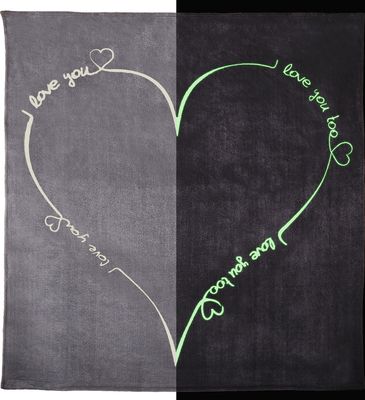 I love you
I love you too
I love you
I love you too